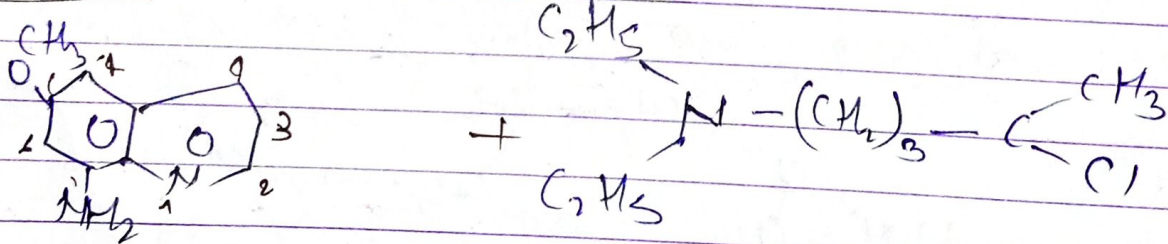 CH₃
O
4
3
N
1
2
NH₂
+
C₂H₅
N – (CH₂)₃ – C
CH₃
Cl
C₂H₅